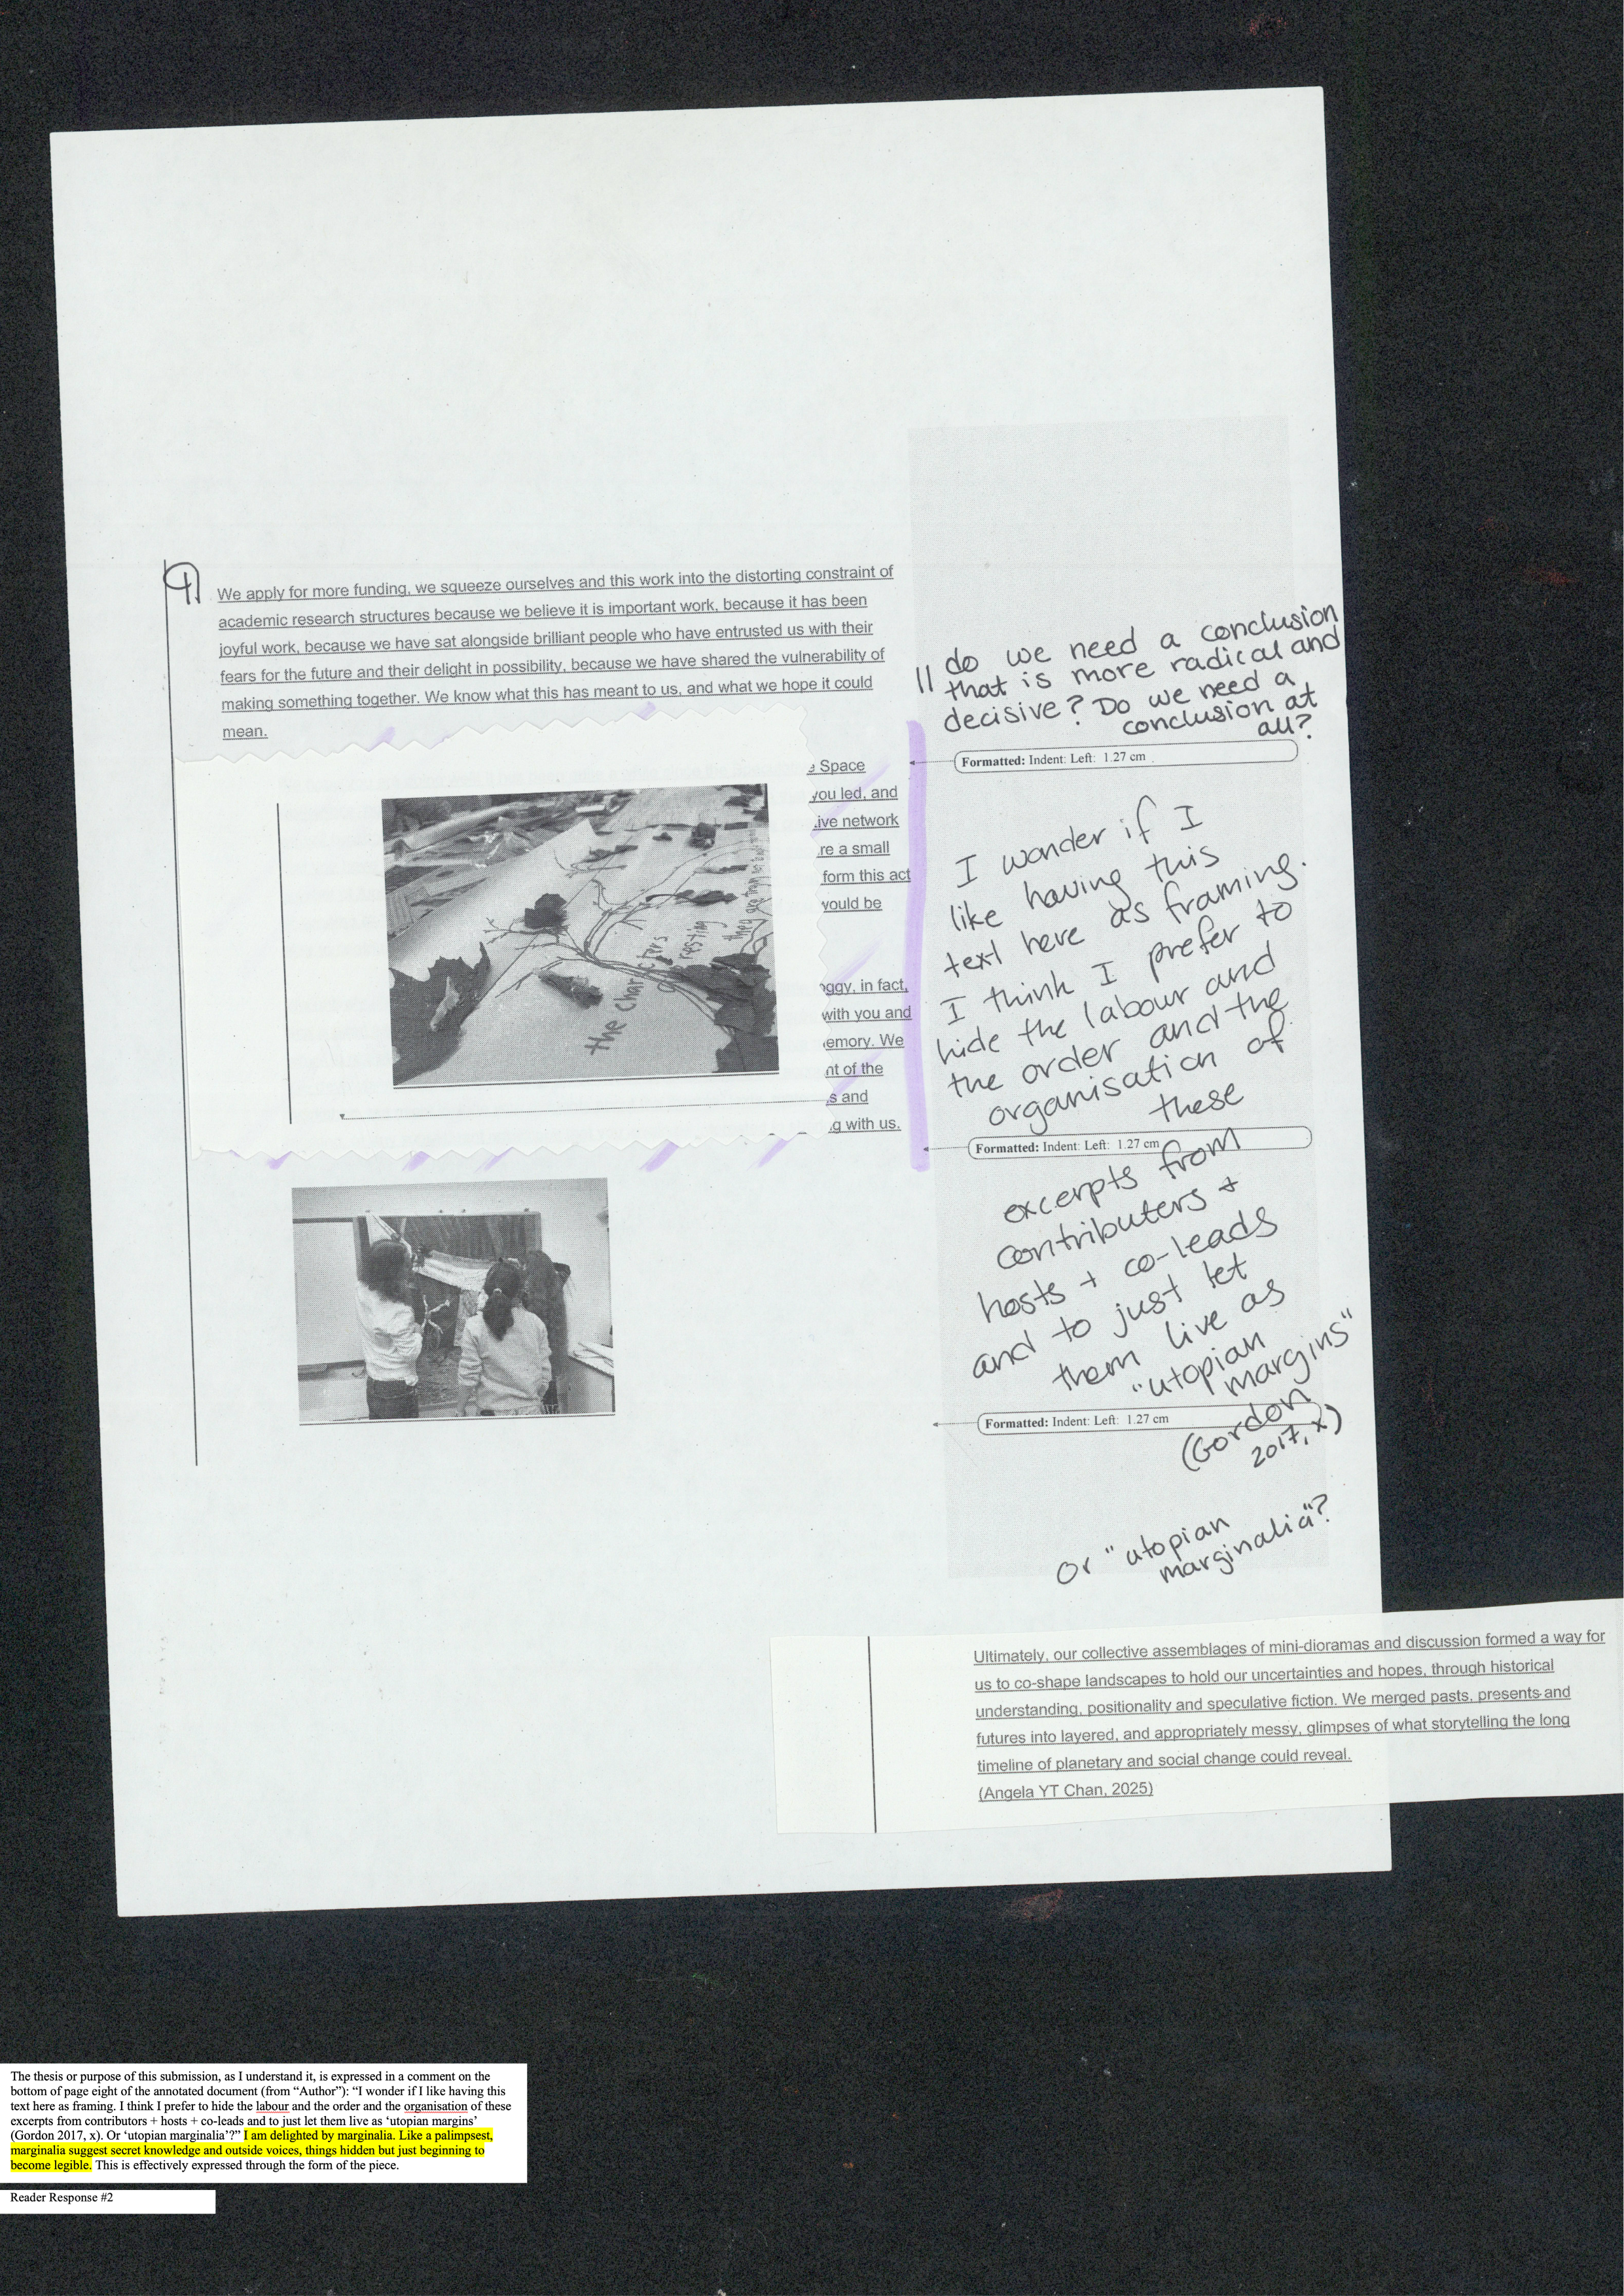 9
We apply for more funding, we squeeze ourselves and this work into the distorting constraint of
academic research structures because we believe it is important work, because it has been
joyful work, because we have sat alongside brilliant people who have entrusted us with their
fears for the future and their delight in possibility, because we have shared the vulnerability of
making something together. We know what this has meant to us, and what we hope it could
mean.
|| do we need a conclusion
that is more radical and
decisive? Do we need a
conclusion at
all?
Formatted: Indent: Left: 1.27 cm
Space
you led, and
ive network
re a small
form this act
would be
oggy, in fact,
with you and
emory. We
nt of the
s and
g with us.
the characters
resting
I wonder if I
like having this
text here as framing.
I think I prefer to
hide the labour and
the order and the
organisation of
these
Formatted: Indent: Left: 1.27 cm
excerpts from
contributers +
hosts + co-leads
and to just let
them live as
"utopian
margins"
Formatted: Indent: Left: 1.27 cm
(Gordon
2017, x)
or "utopian
marginalia"?
Ultimately, our collective assemblages of mini-dioramas and discussion formed a way for
us to co-shape landscapes to hold our uncertainties and hopes, through historical
understanding, positionality and speculative fiction. We merged pasts, presents and
futures into layered, and appropriately messy, glimpses of what storytelling the long
timeline of planetary and social change could reveal.
(Angela YT Chan, 2025)
The thesis or purpose of this submission, as I understand it, is expressed in a comment on the
bottom of page eight of the annotated document (from “Author”): “I wonder if I like having this
text here as framing. I think I prefer to hide the labour and the order and the organisation of these
excerpts from contributors + hosts + co-leads and to just let them live as ‘utopian margins’
(Gordon 2017, x). Or ‘utopian marginalia’?” I am delighted by marginalia. Like a palimpsest,
marginalia suggest secret knowledge and outside voices, things hidden but just beginning to
become legible. This is effectively expressed through the form of the piece.
Reader Response #2